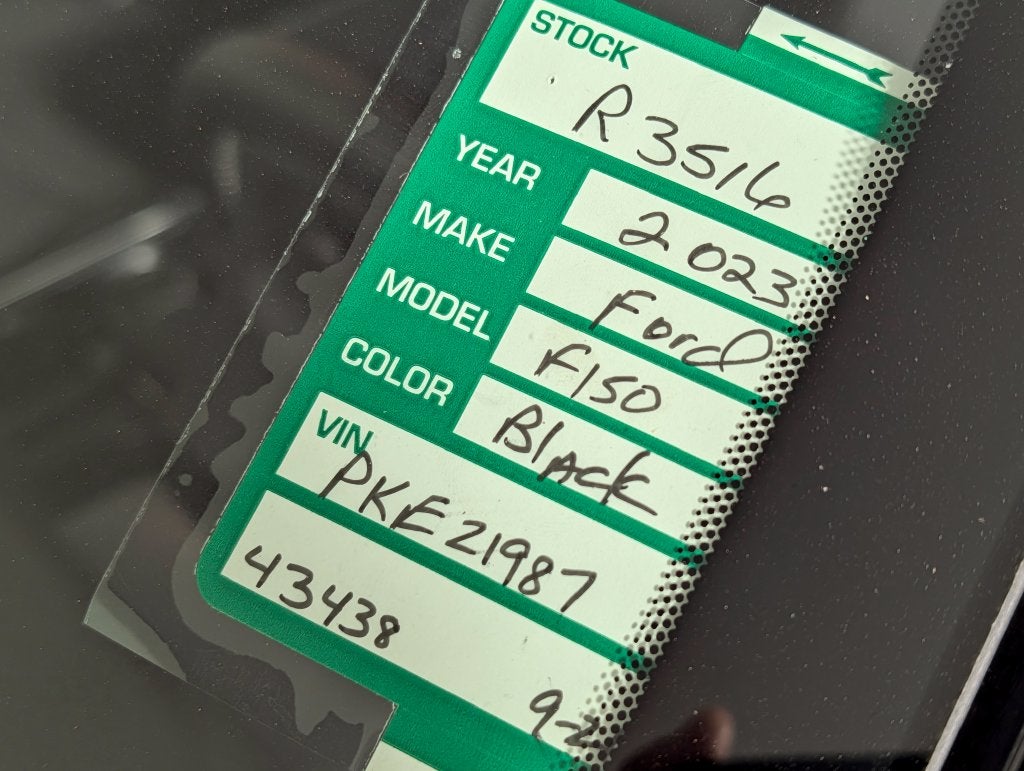 STOCK
R3516
YEAR 2023
MAKE Ford
MODEL F150
COLOR Black
VIN
PKE21987
43438
9-2